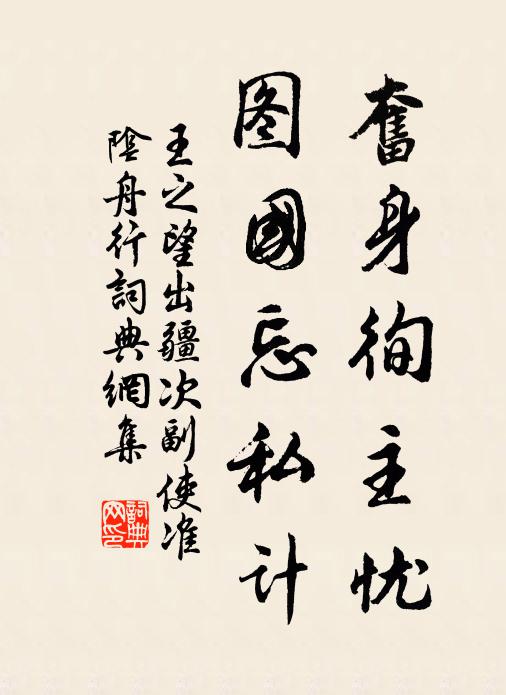 奮身徇主忧
图國忘私计
王之望出疆次副使淮
陰舟行詞典網集
詞典
网印